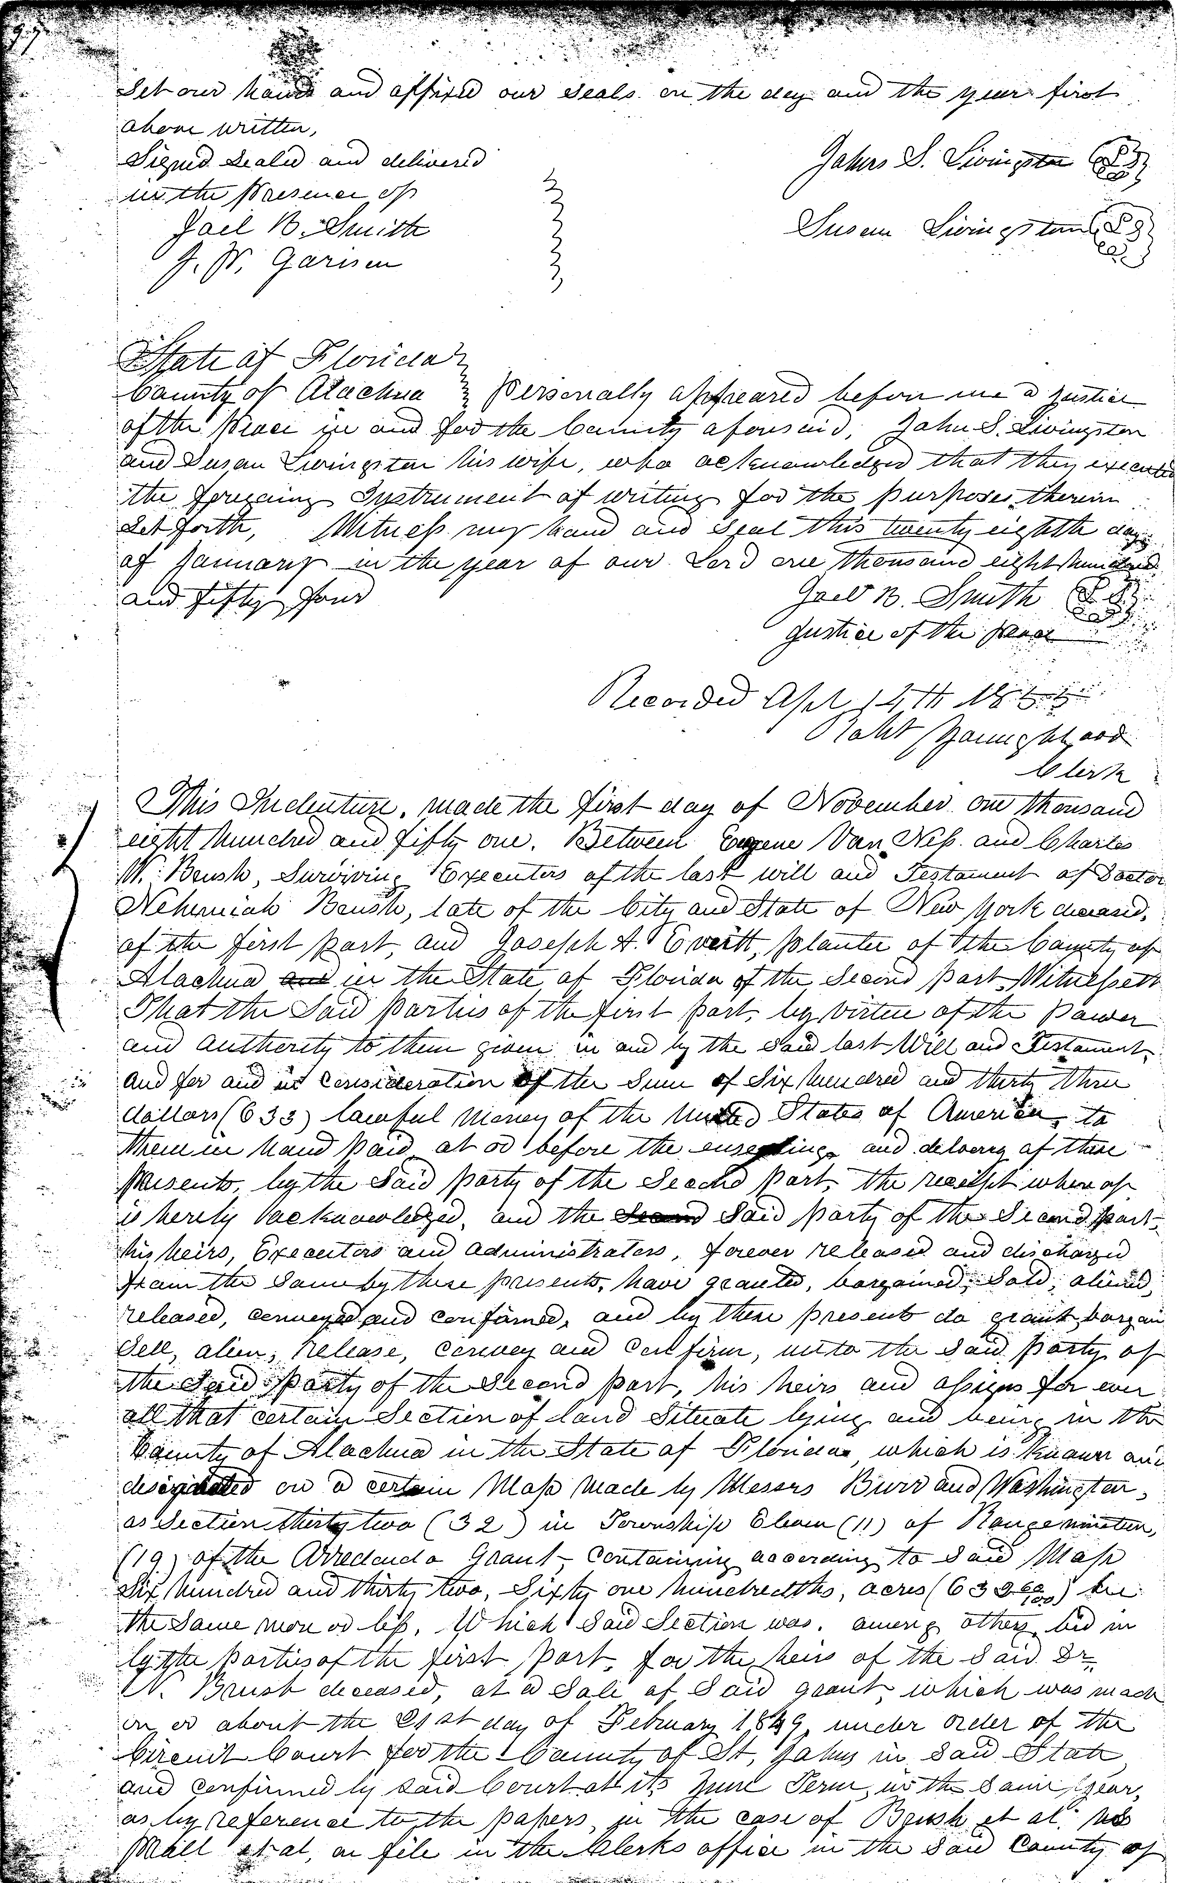 97
Set our hands and affixed our seals on the day and the year first
above written,
Signed Sealed and delivered
in the presence of
Joel B. Smith
J. W. Garison
Johns S. Livingston L S
Susan Livingston L S
State of Florida
County of Alachua personally appeared before me a justice
of the peace in and for the County aforesaid, John S. Livingston
and Susan Livingston his wife, who acknowledged that they executed
the foregoing Instrument of writing for the purposes therein
Set forth, Witness my hand and seal this twenty eighth day
of January in the year of our Lord one thousand eight hundred
and fifty four
Joel B. Smith L S
Justice of the peace
Recorded Apl 14th 1855
Robt Youngblood
Clerk
This Indenture, made the first day of November one thousand
eight hundred and fifty one. Between Eugene Van Ness and Charles
W. Brush, Surviving Executors of the last will and Testament of Doctor
Nehemiah Brush, late of the City and State of New York deceased,
of the first part, and Joseph A. Everitt, planter of the County of
Alachua and in the State of Florida of the Second part Witnesseth
That the Said parties of the first part, by virtue of the Power
and authority to them given in and by the Said last Will and Testament,
and for and in consideration of the Sum of Six hundred and thirty three
dollars (633) lawful money of the United States of America, to
them in hand paid at or before the ensealing and delivery of these
presents, by the Said party of the Second part, the receipt where of
is hereby acknowledged, and the Second Said party of the Second part,
his heirs, Executors and administrators, forever released and discharged
from the Same by these presents, have granted, bargained, Sold, aliened,
released, conveyed and confirmed, and by these presents do grant bargain
Sell, alien, release, convey and confirm, unto the Said party of
the Said party of the Second part, his heirs and assigns for ever
all that certain Section of land Situate lying and being in the
County of Alachua in the State of Florida, which is known and
designated on a certain Map made by Messrs Burr and Washington,
as Section thirty two (32) in Township Eleven (11) of Range nineteen,
(19) of the Arredondo Grant, containing according to Said Map
Six hundred and thirty two, Sixty one hundredths, acres (632 60/100) be
the Same more or less, Which Said Section was, among others, bid in
by the parties of the first part, for the heirs of the Said Dr.
N. Brush deceased, at a Sale of Said grant, which was made
on or about the 21st day of February 1849, under order of the
Circuit Court for the County of St, Johns in Said State
and confirmed by said Court at its June Term, in the Same year,
as by reference to the papers, in the case of Brush et al. vs
Mall et al, on file in the Clerks office in the Said County of